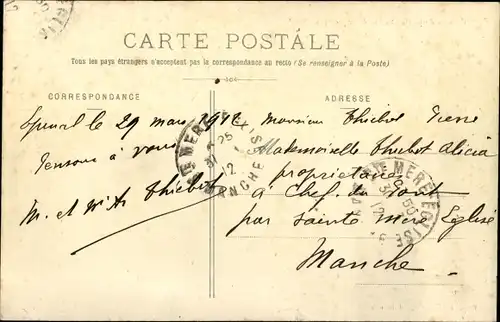 CARTE POSTALE
Tous les pays étrangers n'acceptent pas la correspondance au recto (Se renseigner à la Poste)
CORRESPONDANCE
le 29 mars 1912
Pensons à vous
M. et Mme Thiebot
ADRESSE
Monsieur Thiebot Pierre
Mademoiselle Thiebot Alicia
propriétaire
à Chef du Pont
par Sainte Mère Eglise
Manche
STE MERE EGLISE
12
MANCHE
STE MERE EGLISE
30
12